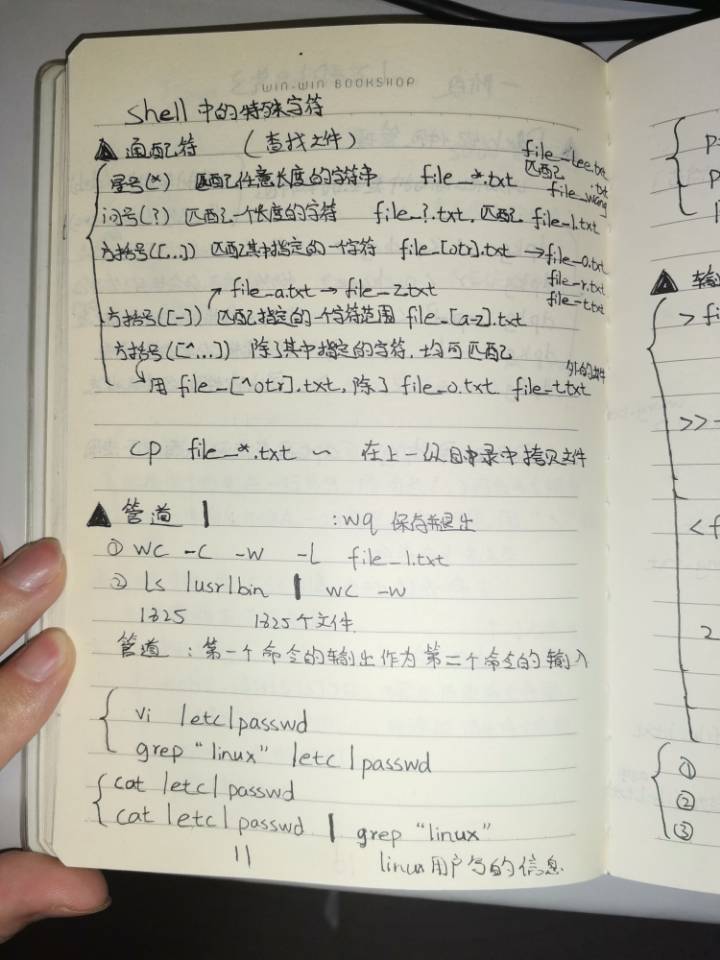 WIN-WIN BOOKSHOP
shell 中的特殊字符
▲ 通配符 (查找文件)
星号(*) 匹配任意长度的字符串 file_*.txt file_lee.txt
匹配 .txt
file_wang
问号(?) 匹配一个长度的字符 file_?.txt, 匹配 file_1.txt
方括号([...]) 匹配其中指定的一个字符 file_[otr].txt → file_o.txt
file_r.txt
file_t.txt
↗ file_a.txt → file_z.txt
方括号([-]) 匹配指定的一个字符范围 file_[a-z].txt
方括号([^...]) 除了其中指定的字符,均可匹配
用 file_[^otr].txt, 除了 file_o.txt file_t.txt 外的文件
cp file_*.txt ~ 在上一级目录中拷贝文件
▲ 管道 | :wq 保存并退出
① wc -c -w -l file_1.txt
② ls /usr/bin | wc -w
1325 1325个文件
管道:第一个命令的输出作为第二个命令的输入
vi /etc/passwd
grep "linux" /etc/passwd
cat /etc/passwd
cat /etc/passwd | grep "linux"
11 linux用户名的信息
▲ 输
> fi
>>
<f
2
①
②
③